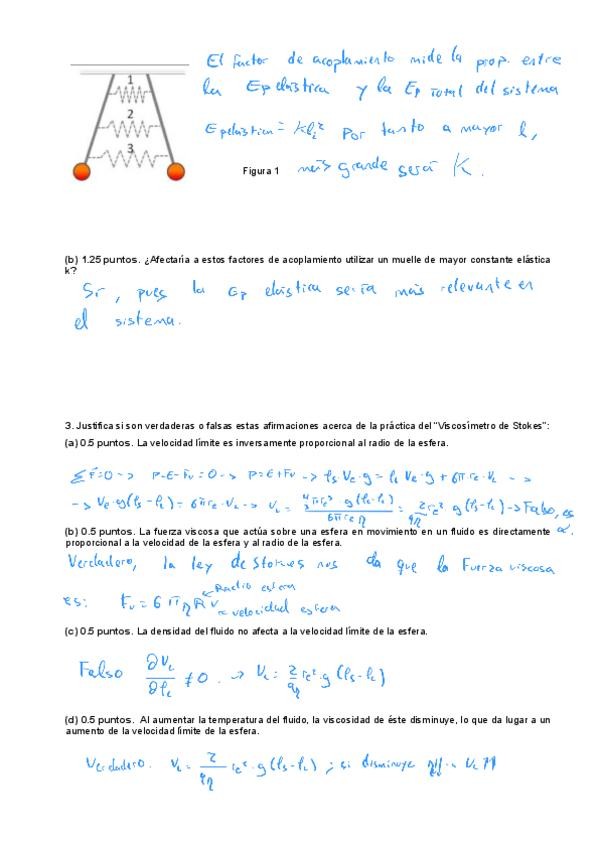 El factor de acoplamiento mide la prop. entre
la Ep elástica y la Ep total del sistema
1
2
3
Ep elástica = kl²
Por tanto a mayor l,
Figura 1
más grande será K.
(b) 1.25 puntos. ¿Afectaría a estos factores de acoplamiento utilizar un muelle de mayor constante elástica
k?
Sí, pues la Ep elástica sería más relevante en
el sistema.
3. Justifica si son verdaderas o falsas estas afirmaciones acerca de la práctica del "Viscosímetro de Stokes":
(a) 0.5 puntos. La velocidad límite es inversamente proporcional al radio de la esfera.
ΣF=0 -> P-E-Fv=0 -> P=E+Fv -> ρs·Ve·g = ρL Ve·g + 6πre·VL ->
-> Ve·g(ρs-ρL) = 6πre·VL -> VL = g(ρs-ρL) / 6πreη = 2re²/9η g(ρs-ρL) -> Falso, es
α.
(b) 0.5 puntos. La fuerza viscosa que actúa sobre una esfera en movimiento en un fluido es directamente
proporcional a la velocidad de la esfera y al radio de la esfera.
Verdadero, la ley de Stokes nos da que la Fuerza viscosa
es: Fv = 6πηRv
Radio esfera
velocidad esfera
(c) 0.5 puntos. La densidad del fluido no afecta a la velocidad límite de la esfera.
Falso ∂VL/∂ρL ≠ 0. -> VL = 2/9η re²·g(ρs-ρL)
(d) 0.5 puntos. Al aumentar la temperatura del fluido, la viscosidad de éste disminuye, lo que da lugar a un
aumento de la velocidad límite de la esfera.
Verdadero. VL = 2/9η re²·g(ρs-ρL) ; si disminuye